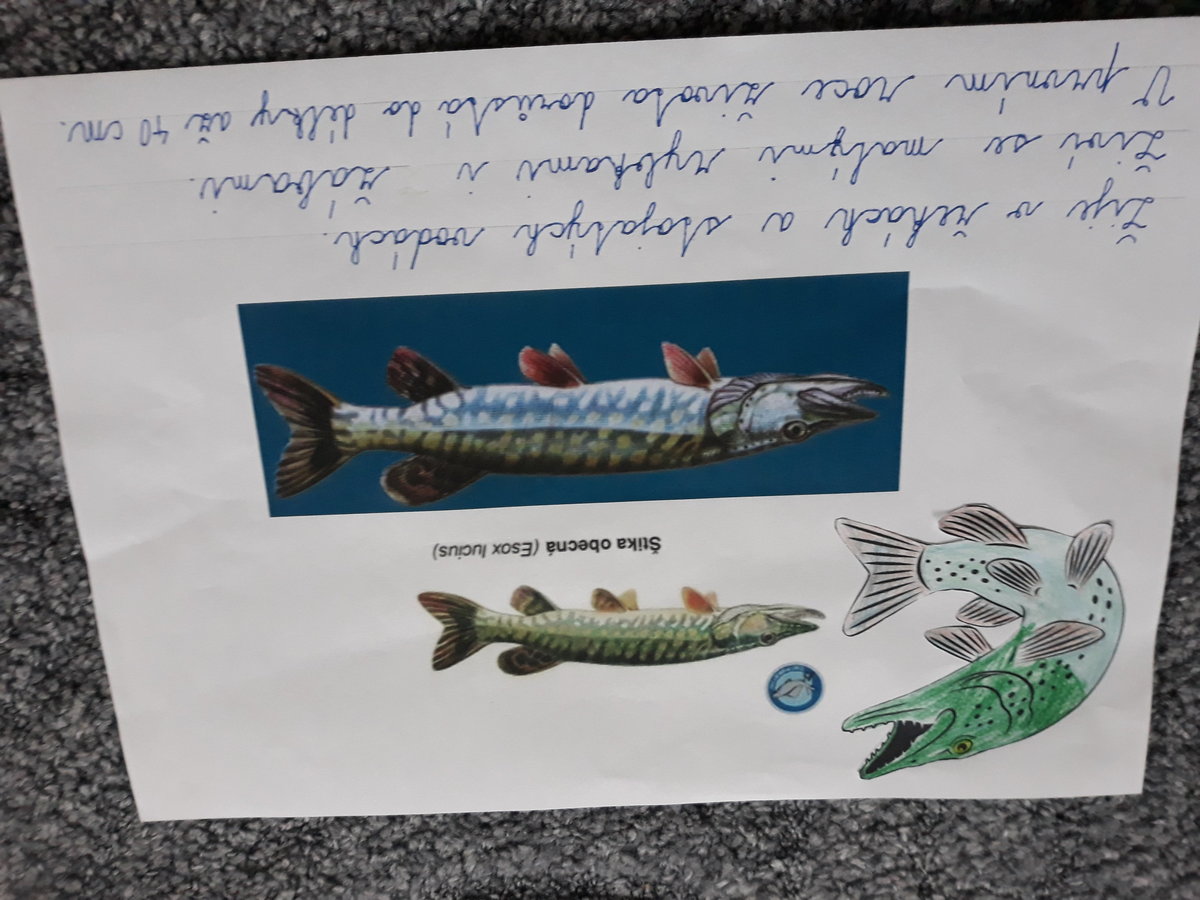 Štika obecná (Esox lucius)
Žije v řekách a stojatých vodách.
Živí se malými rybkami i žábami.
V prvním roce života dorůstá do délky až 40 cm.